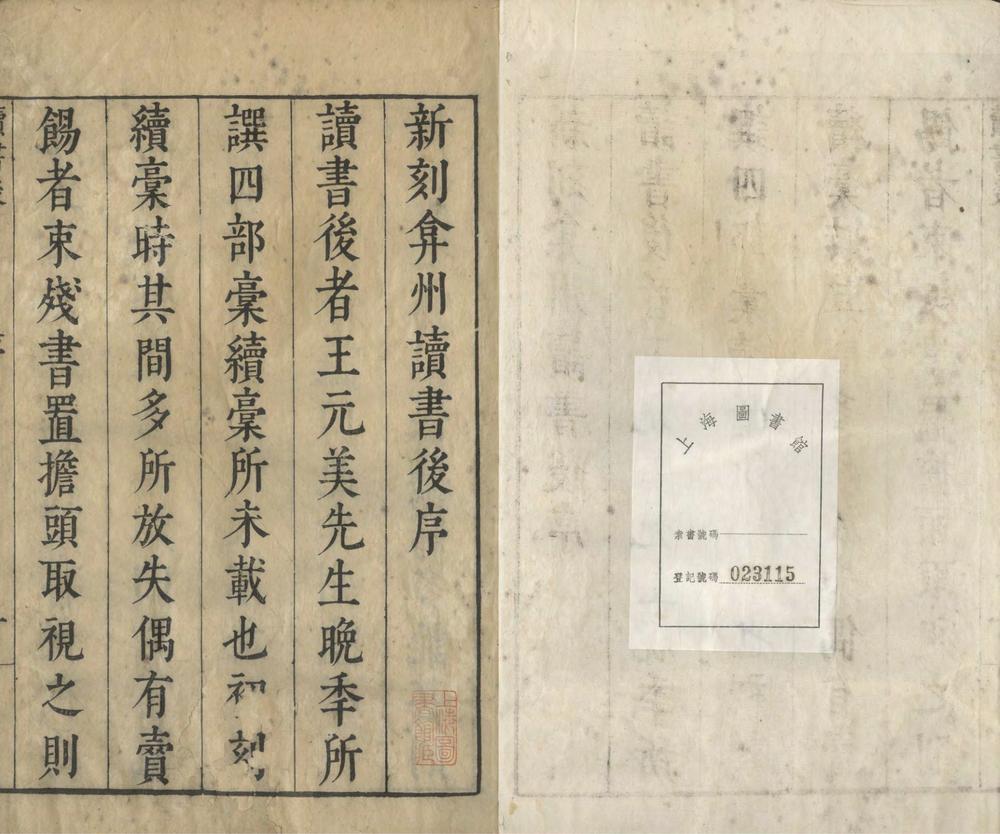 新刻弇州讀書後序
讀書後者王元美先生晩秊所
譔四部稾續稾所未載也初刻
續稾時其間多所放失偶有賣
餳者束殘書置擔頭取視之則
上海圖書館
索書號碼
登記號碼 023115
上海圖書館藏